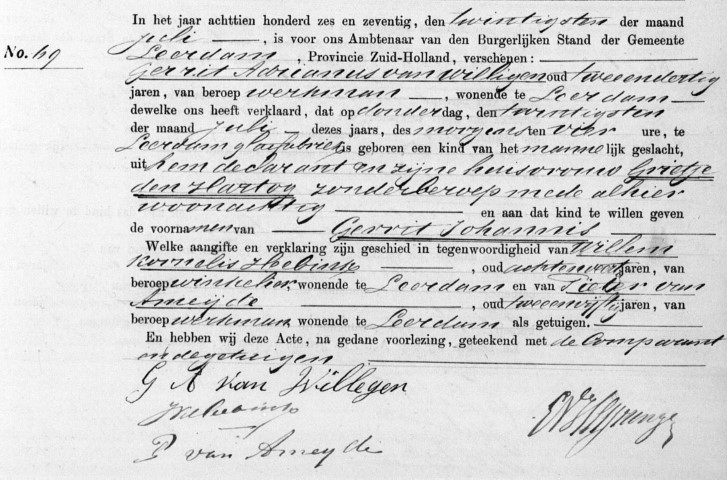 In het jaar achttien honderd zes en zeventig, den twintigsten der maand
Juli, is voor ons Ambtenaar van den Burgerlijken Stand der Gemeente
No. 69 Leerdam, Provincie Zuid-Holland, verschenen:
Gerrit Adrianus van Willigen oud tweeendertig
jaren, van beroep werkman, wonende te Leerdam
dewelke ons heeft verklaard, dat op donderdag, den twintigsten
der maand Juli dezes jaars, des morgens ten vier ure, te
Leerdam glasfabriek is geboren een kind van het mannelijk geslacht,
uit hem declarant en zijne huisvrouw Grietje
den Hartog zonder beroep mede alhier
woonachtig en aan dat kind te willen geven
de voornamen van Gerrit Johannis
Welke aangifte en verklaring zijn geschied in tegenwoordigheid van Willem
Kornelis Hebink, oud jaren, van
beroep winkelier, wonende te Leerdam en van Pieter van
Ameyde, oud tweeenvijftig jaren, van
beroep werkman, wonende te Leerdam als getuigen.
En hebben wij deze Acte, na gedane voorlezing, geteekend met de Comparant
en de getuigen
G A van Willegen
P van Ameyde